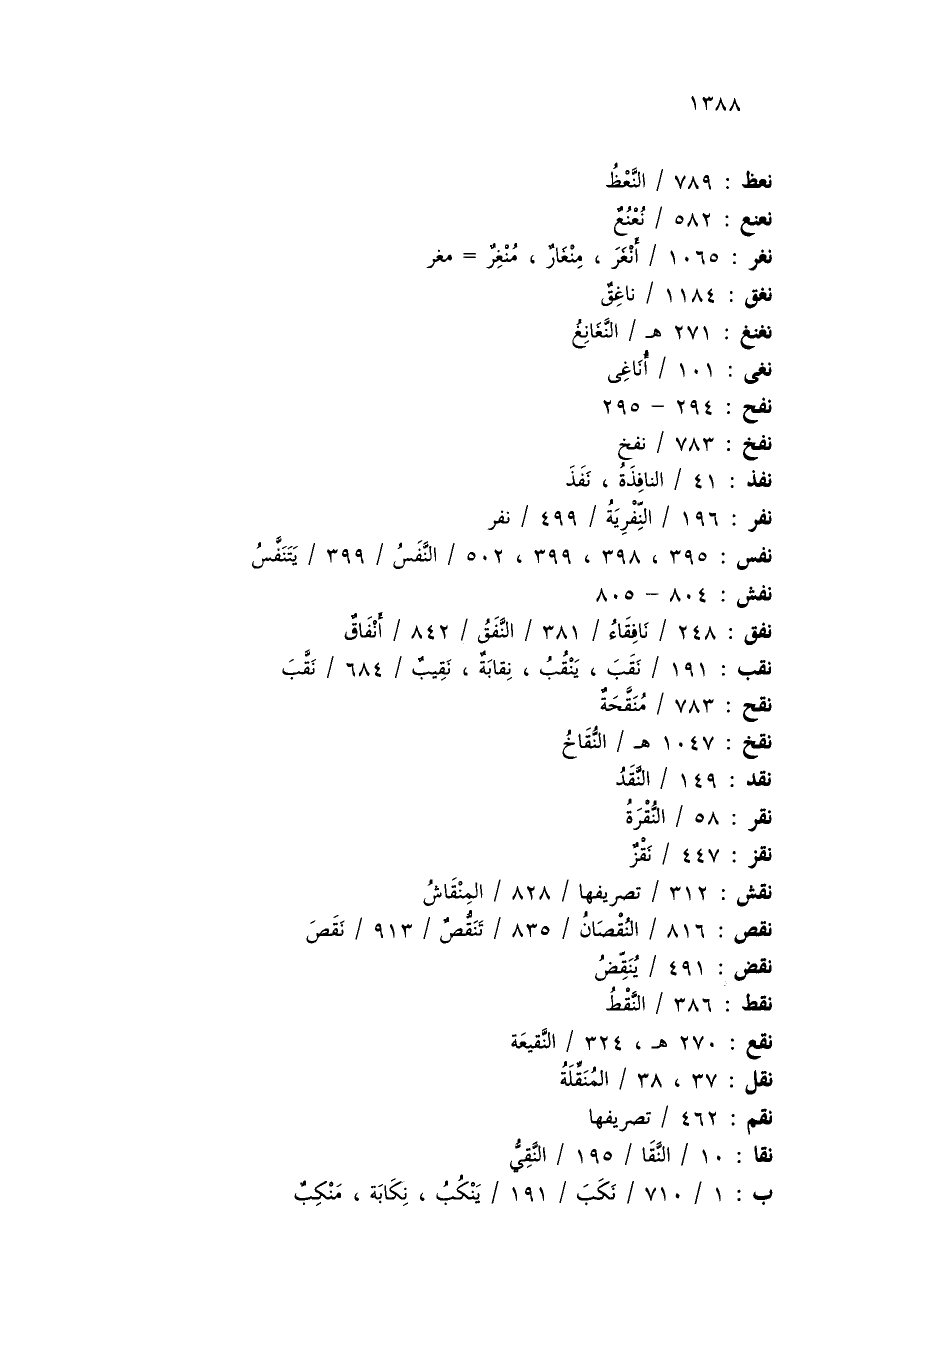 ١٣٨٨
نعظ : ٧٨٩ / النَّعْظُ
نعنع : ٥٨٢ / نُعْنُعٌ
نغر : ١٠٦٥ / أَنْغَرَ ، مِنْغَارٌ ، مُنْغِرٌ = مغر
نغق : ١١٨٤ / ناغِقٌ
نغنغ : ٢٧١ هـ / النَّغَانِغُ
نغى : ١٠١ / أُنَاغِى
نفح : ٢٩٤ – ٢٩٥
نفخ : ٧٨٣ / نفخ
نفذ : ٤١ / النافِذَةُ ، نَفَذَ
نفر : ١٩٦ / النِّفْرِيَةُ / ٤٩٩ / نفر
نفس : ٣٩٥ ، ٣٩٨ ، ٣٩٩ ، ٥٠٢ / النَّفَسُ / ٣٩٩ / يَتَنَفَّسُ
نفش : ٨٠٤ – ٨٠٥
نفق : ٢٤٨ / نَافِقَاءُ / ٣٨١ / النَّفَقُ / ٨٤٢ / أَنْفَاقٌ
نقب : ١٩١ / نَقَبَ ، يَنْقُبُ ، نِقابَةٌ ، نَقِيبٌ / ٦٨٤ / نَقَّبَ
نقح : ٧٨٣ / مُنَقَّحَةٌ
نقخ : ١٠٤٧ هـ / النُّقَاخُ
نقد : ١٤٩ / النَّقَدُ
نقر : ٥٨ / النُّقْرَةُ
نقز : ٤٤٧ / نَقْزٌ
نقش : ٣١٢ / تصريفها / ٨٢٨ / المِنْقَاشُ
نقص : ٨١٦ / النُقْصَانُ / ٨٣٥ / تَنَقُّصٌ / ٩١٣ / نَقَصَ
نقض : ٤٩١ / يُنَقِّضُ
نقط : ٣٨٦ / النَّقْطُ
نقع : ٢٧٠ هـ ، ٣٢٤ / النَّقيعَة
نقل : ٣٧ ، ٣٨ / المُنَقِّلَةُ
نقم : ٤٦٢ / تصريفها
نقا : ١٠ / النَّقَا / ١٩٥ / النَّقِيُّ
ب : ١ / ٧١٠ / نَكَبَ / ١٩١ / يَنْكُبُ ، نِكَابَة ، مَنْكِبٌ